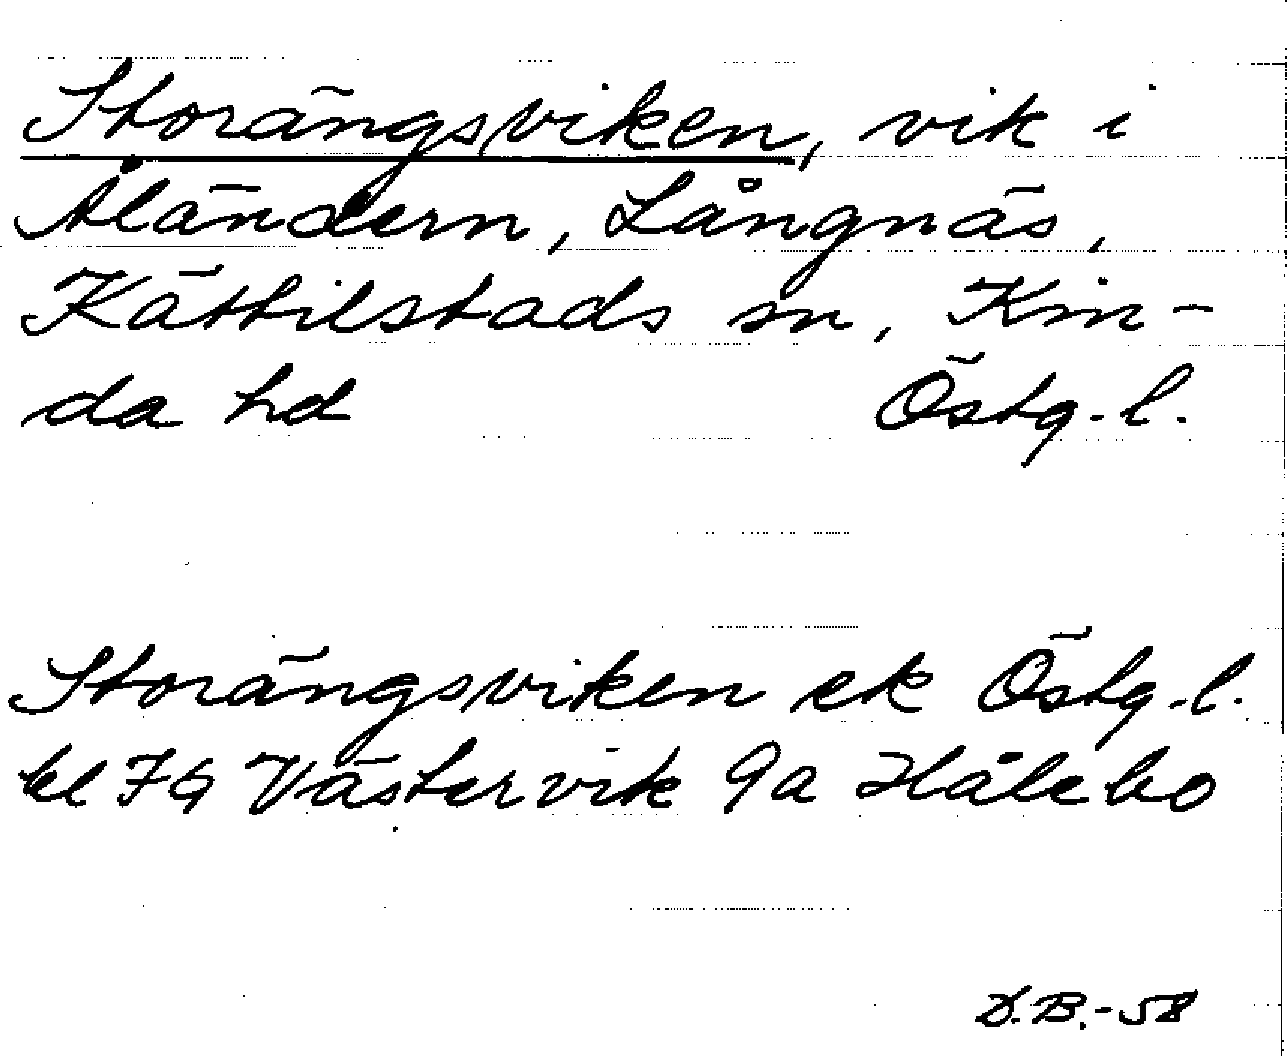 Storängsviken, vik i
Åländern, Långnäs,
Kättilstads sn, Kin-
da hd Östg.l.
Storängsviken ek Östg.l.
bl 7G Västervik 9a Hålebo
D.B.-58